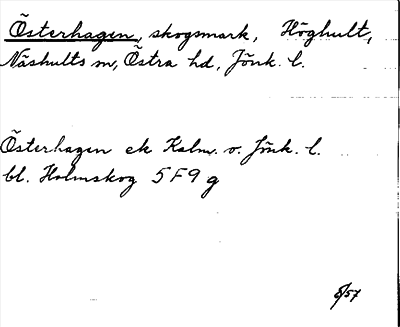 Österhagen, skogsmark, Höghult,
Näshults sn, Östra hd, Jönk. l.
Österhagen ek Kalm. o. Jönk. l.
bl. Holmskog 5F9g
8/57